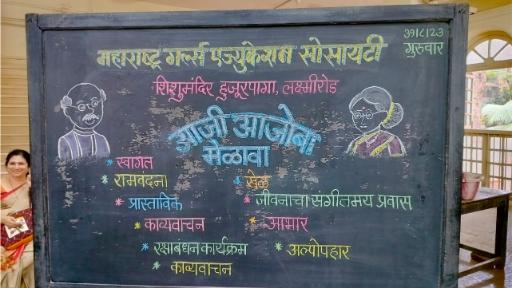 ३१/८/२३
गुरुवार
महाराष्ट्र गर्ल्स एज्युकेशन सोसायटी
शिशुमंदिर हुजूरपागा, लक्ष्मीरोड
आजी आजोबा
मेळावा
* स्वागत
* रामवंदना
* प्रास्ताविक
* काव्यवाचन
* रक्षाबंधन कार्यक्रम
* काव्यवाचन
* खेळ
* जीवनाचा संगीतमय प्रवास
* आभार
* अल्पोपहार